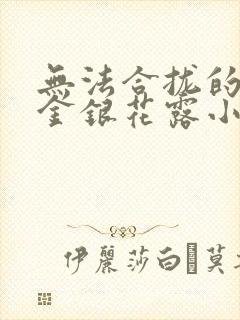 無法合拢的
金銀花露小
伊麗莎白莫